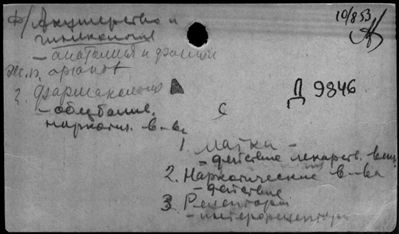 ф/Акушерство и
гинекология
10/853
- анатомия и физиол
ж.п. органов
2. фармакология
Д 9846
- общ
наркотич. в-ва
с
1. матка -
- действие лекарств. вещ
2. Наркотические в-ва
- действие
3. Рецепторы
- интерорецепторы